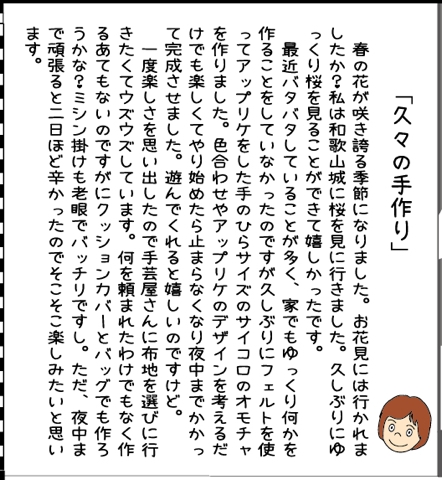 「久々の手作り」
春の花が咲き誇る季節になりました。お花見には行かれま
したか?私は和歌山城に桜を見に行きました。久しぶりにゆ
っくり桜を見ることができて嬉しかったです。
最近バタバタしていることが多く、家でもゆっくり何かを
作ることをしていなかったのですが久しぶりにフェルトを使
ってアップリケをした手のひらサイズのサイコロのオモチャ
を作りました。色合わせやアップリケのデザインを考えるだ
けでも楽しくてやり始めたら止まらなくなり夜中までかかっ
て完成させました。遊んでくれると嬉しいのですけど。
一度楽しさを思い出したので手芸屋さんに布地を選びに行
きたくてウズウズしています。何を頼まれたわけでもなく作
るあてもないのですがにクッションカバーとバッグでも作ろ
うかな?ミシン掛けも老眼でバッチリですし。ただ、夜中ま
で頑張ると二日ほど辛かったのでそこそこ楽しみたいと思い
ます。